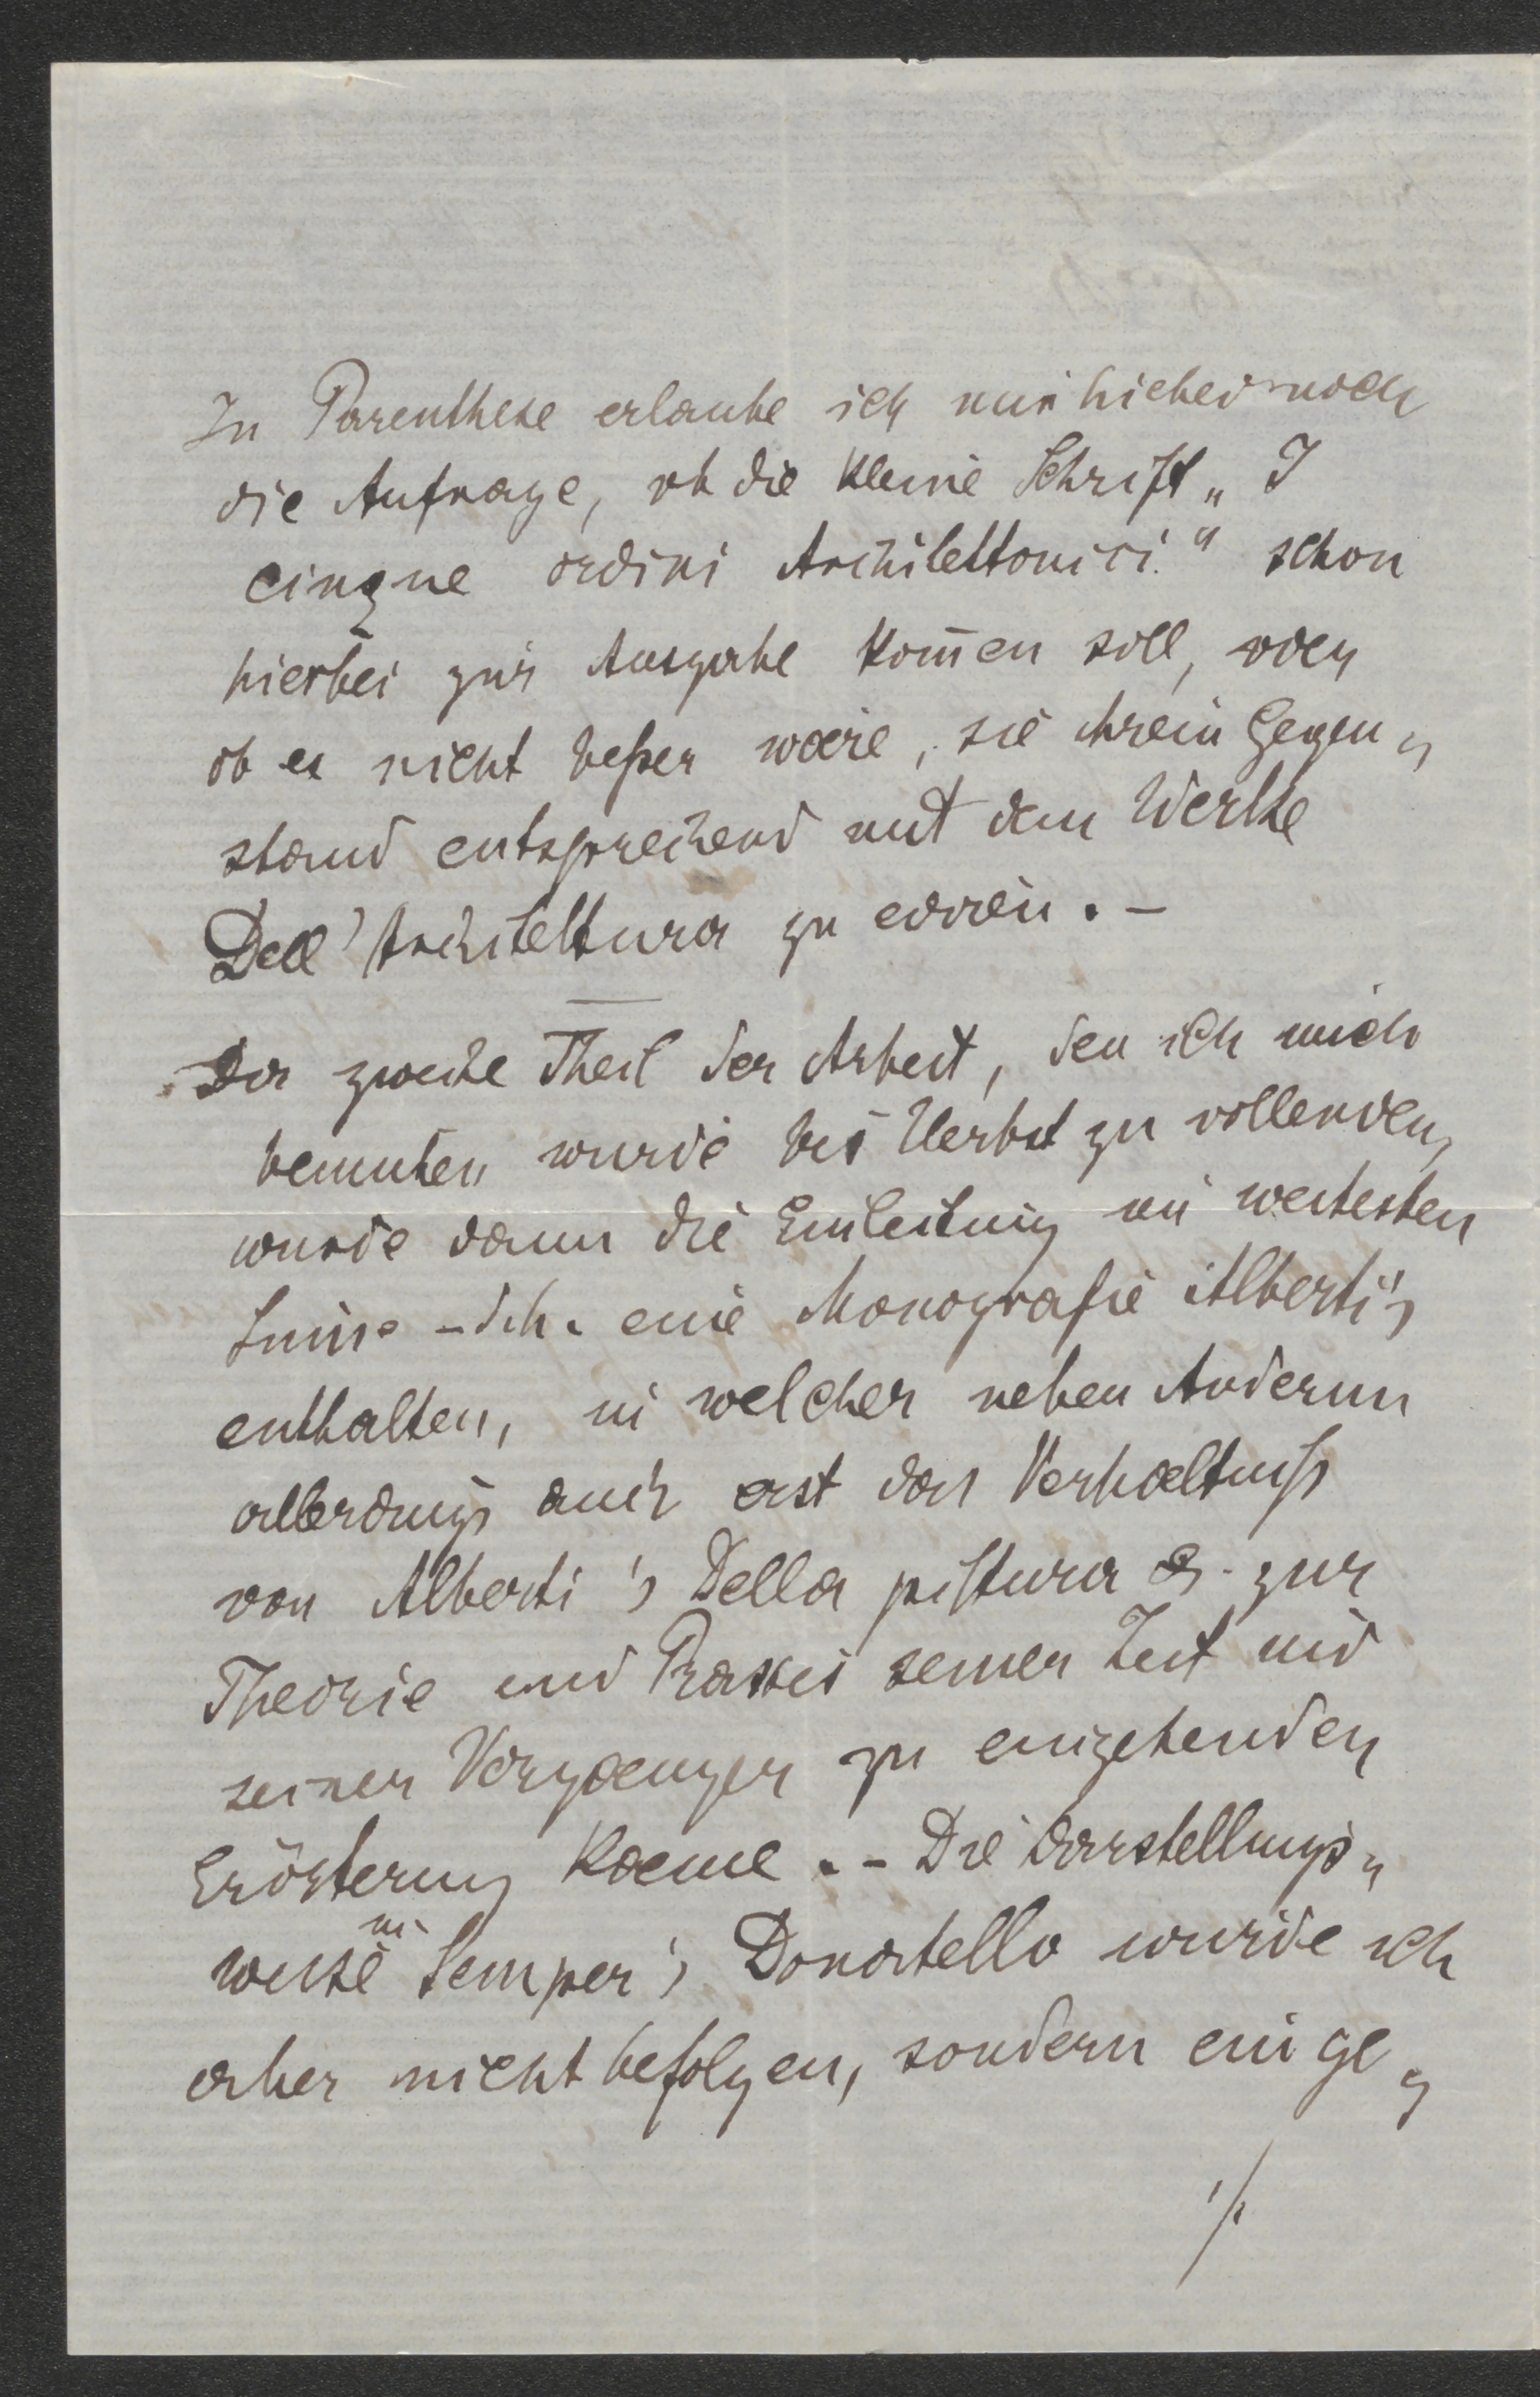 In Parenthese erlaube ich mir hiebei noch
die Anfrage, ob die kleine Schrift „I
cinque ordini Architettonici" schon
hierbei zur Ausgabe kom̄en soll, oder
ob es nicht beßer waere, sie ihrem Gegen„
stand entsprechend mit dem Werke
Dell' Architettura zu ediren. –
Der zweite Theil der Arbeit, den ich mich
bemuhen wurde bis Herbst zu vollenden,
wurde dann die Einleitung im weitesten
Sinne – d.h. eine Monografie Alberti's
enthalten, in welcher neben Anderem
allerdings auch erst das Verhaeltniß
von Alberti's Della pittura &. zur
Theorie und Praxis seiner Zeit und
seiner Vorgaenger zu eingehender
Erörterung kaeme. – Die Darstellungs„
weise in Semper's Donatello wurde ich
aber nicht befolgen, sondern ein ge„
./.